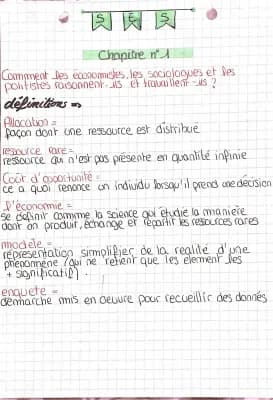 S E S
Chapitre n°1
Comment les économistes, les sociologues et les
politistes raisonnent-ils et travaillent-ils ?
définitions =>
Allocation =
façon dont une ressource est distribué
ressource rare =
ressource qui n'est pas présente en quantité infinie
Coût d'opportunité =
ce a quoi renonce un individu lorsqu'il prend une décision
L'économie =
se définit comme la science qui étudie la manière
dont on produit, échange et répartit les ressources rares
modèle =
représentation simplifier de la réalité d'une
phénomène (qui ne retient que les element les
+ significatif) .
enquete =
démarche mis en oeuvre pour recueillir des donnés